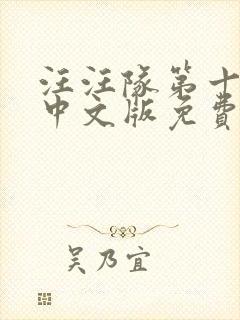 汪汪隊第十
中文版免費
吴乃宜